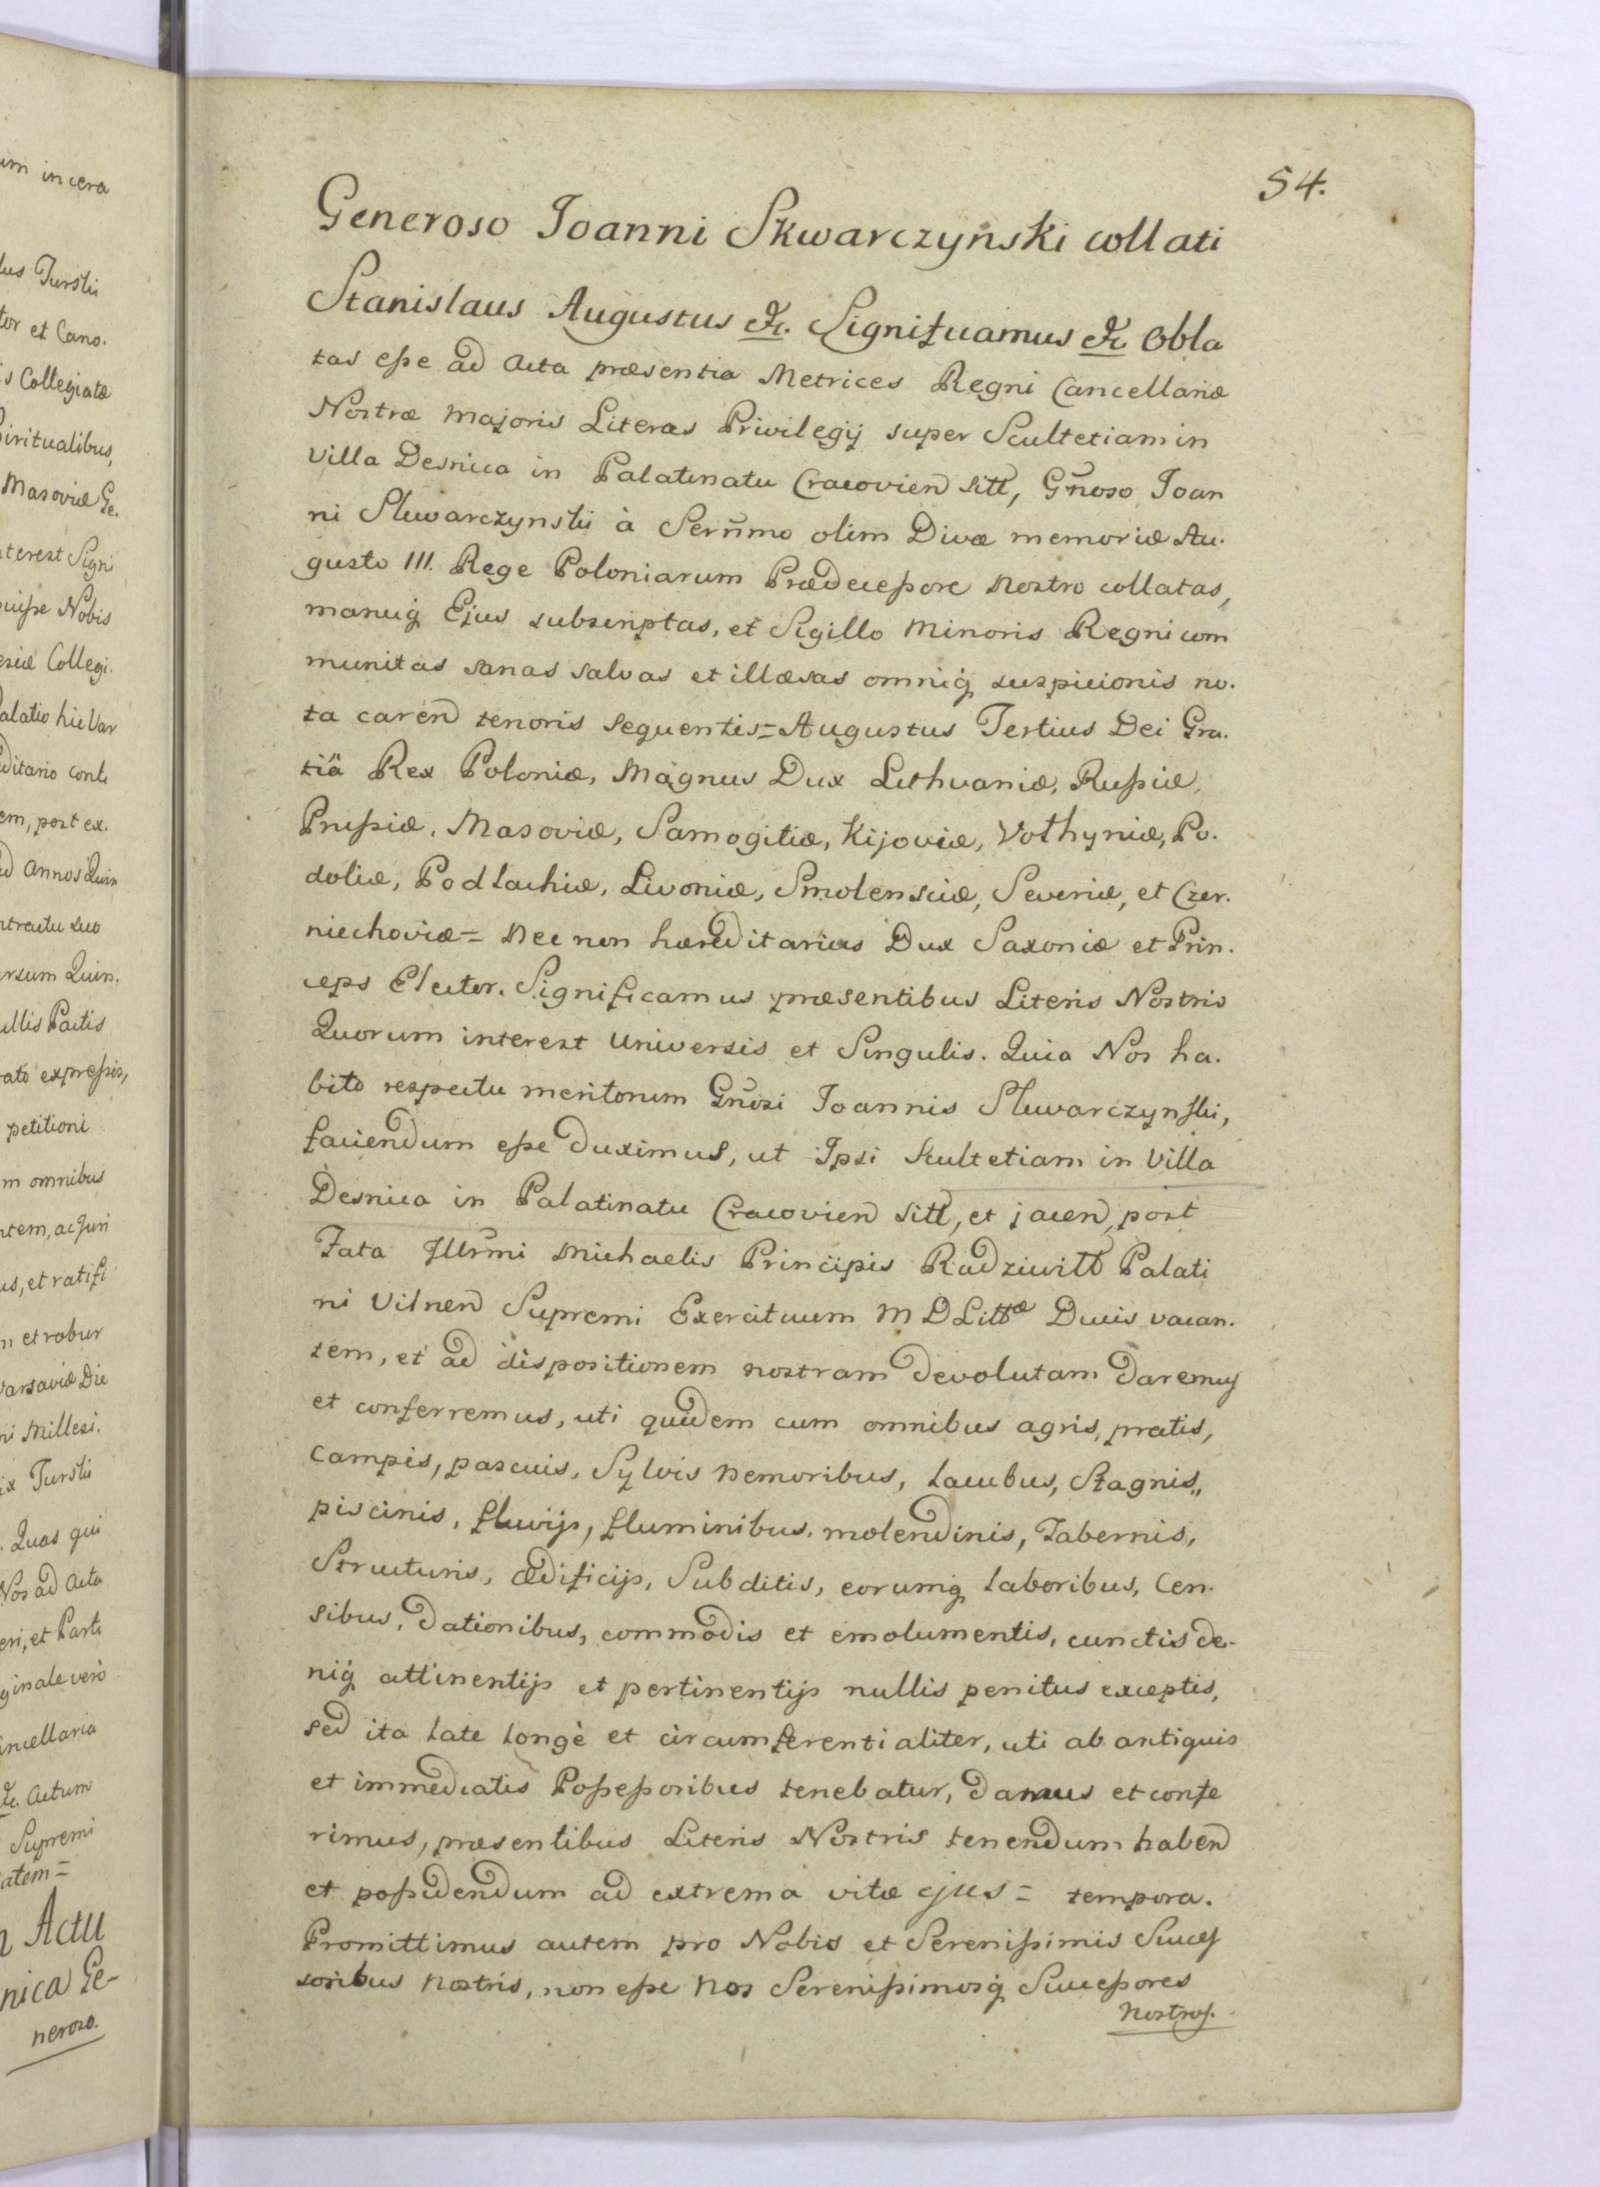 54.
Generoso Joanni Skwarczyński collati
Stanislaus Augustus &c. Significamus &c Obla
tas eße ad Acta præsentia Metrices Regni Cancellariæ
Nostræ Majoris Literas Privilegij super Scultetiam in
Villa Desnica in Palatinatu Cracovien sitt, Gnoso Joan
ni Skwarczynski à Sermo olim Divæ memoriæ Au.
gusto III. Rege Poloniarum Prædeceßore Nostro collatas,
manuq Ejus subscriptas, et Sigillo Minoris Regni com
munitas sanas salvas et illæsas omniq suspicionis no.
ta caren tenoris sequentis = Augustus Tertius Dei Gra.
tiä Rex Poloniæ, Magnus Dux Lithvaniæ, Rußiæ,
Prußiæ, Masoviæ, Samogitiæ, Kijoviæ, Volhyniæ, Po.
doliæ, Podlachiæ, Livoniæ, Smolensciæ, Severiæ, et Czer.
niechoviæ = Nec non hæreditarius Dux Saxoniæ et Prin.
ceps Elector. Significamus præsentibus Literis Nostris
Quorum interest Universis et Singulis. Quia Nos ha.
bito respectu meritorum Gnosi Joannis Skwarczynski,
faciendum eße duximus, ut Ipsi Scultetiam in Villa
Desnica in Palatinatu Cracovien sitt, et jacen, post
Fata Illrmi Michaelis Principis Radziwill Palati
ni Vilnen Supremi Exercituum M D Littæ Ducis vacan.
tem, et ad dispositionem nostram devolutam daremus
et conferremus, uti quidem cum omnibus agris, pratis,
Campis, pascuis, Sylvis Nemoribus, Lacubus, Stagnis,
piscinis, fluvijs, fluminibus, molendinis, Tabernis,
Structuris, ædificijs, Subditis, eorumq laboribus, Cen.
sibus, dationibus, commodis et emolumentis, cunctis de-
niq attinentijs et pertinentijs nullis penitus exceptis,
sed ita late longè et circumferentialiter, uti ab antiquis
et immediatis Poßeßoribus tenebatur, damus et confe
rimus, præsentibus Literis Nostris tenendum haben
et poßidendum ad extrema vitæ ejus = tempora.
Promittimus autem pro Nobis et Serenißimis Succes
soribus Nostris, non eße Nos Serenißimosq Succeßores
Nostros.